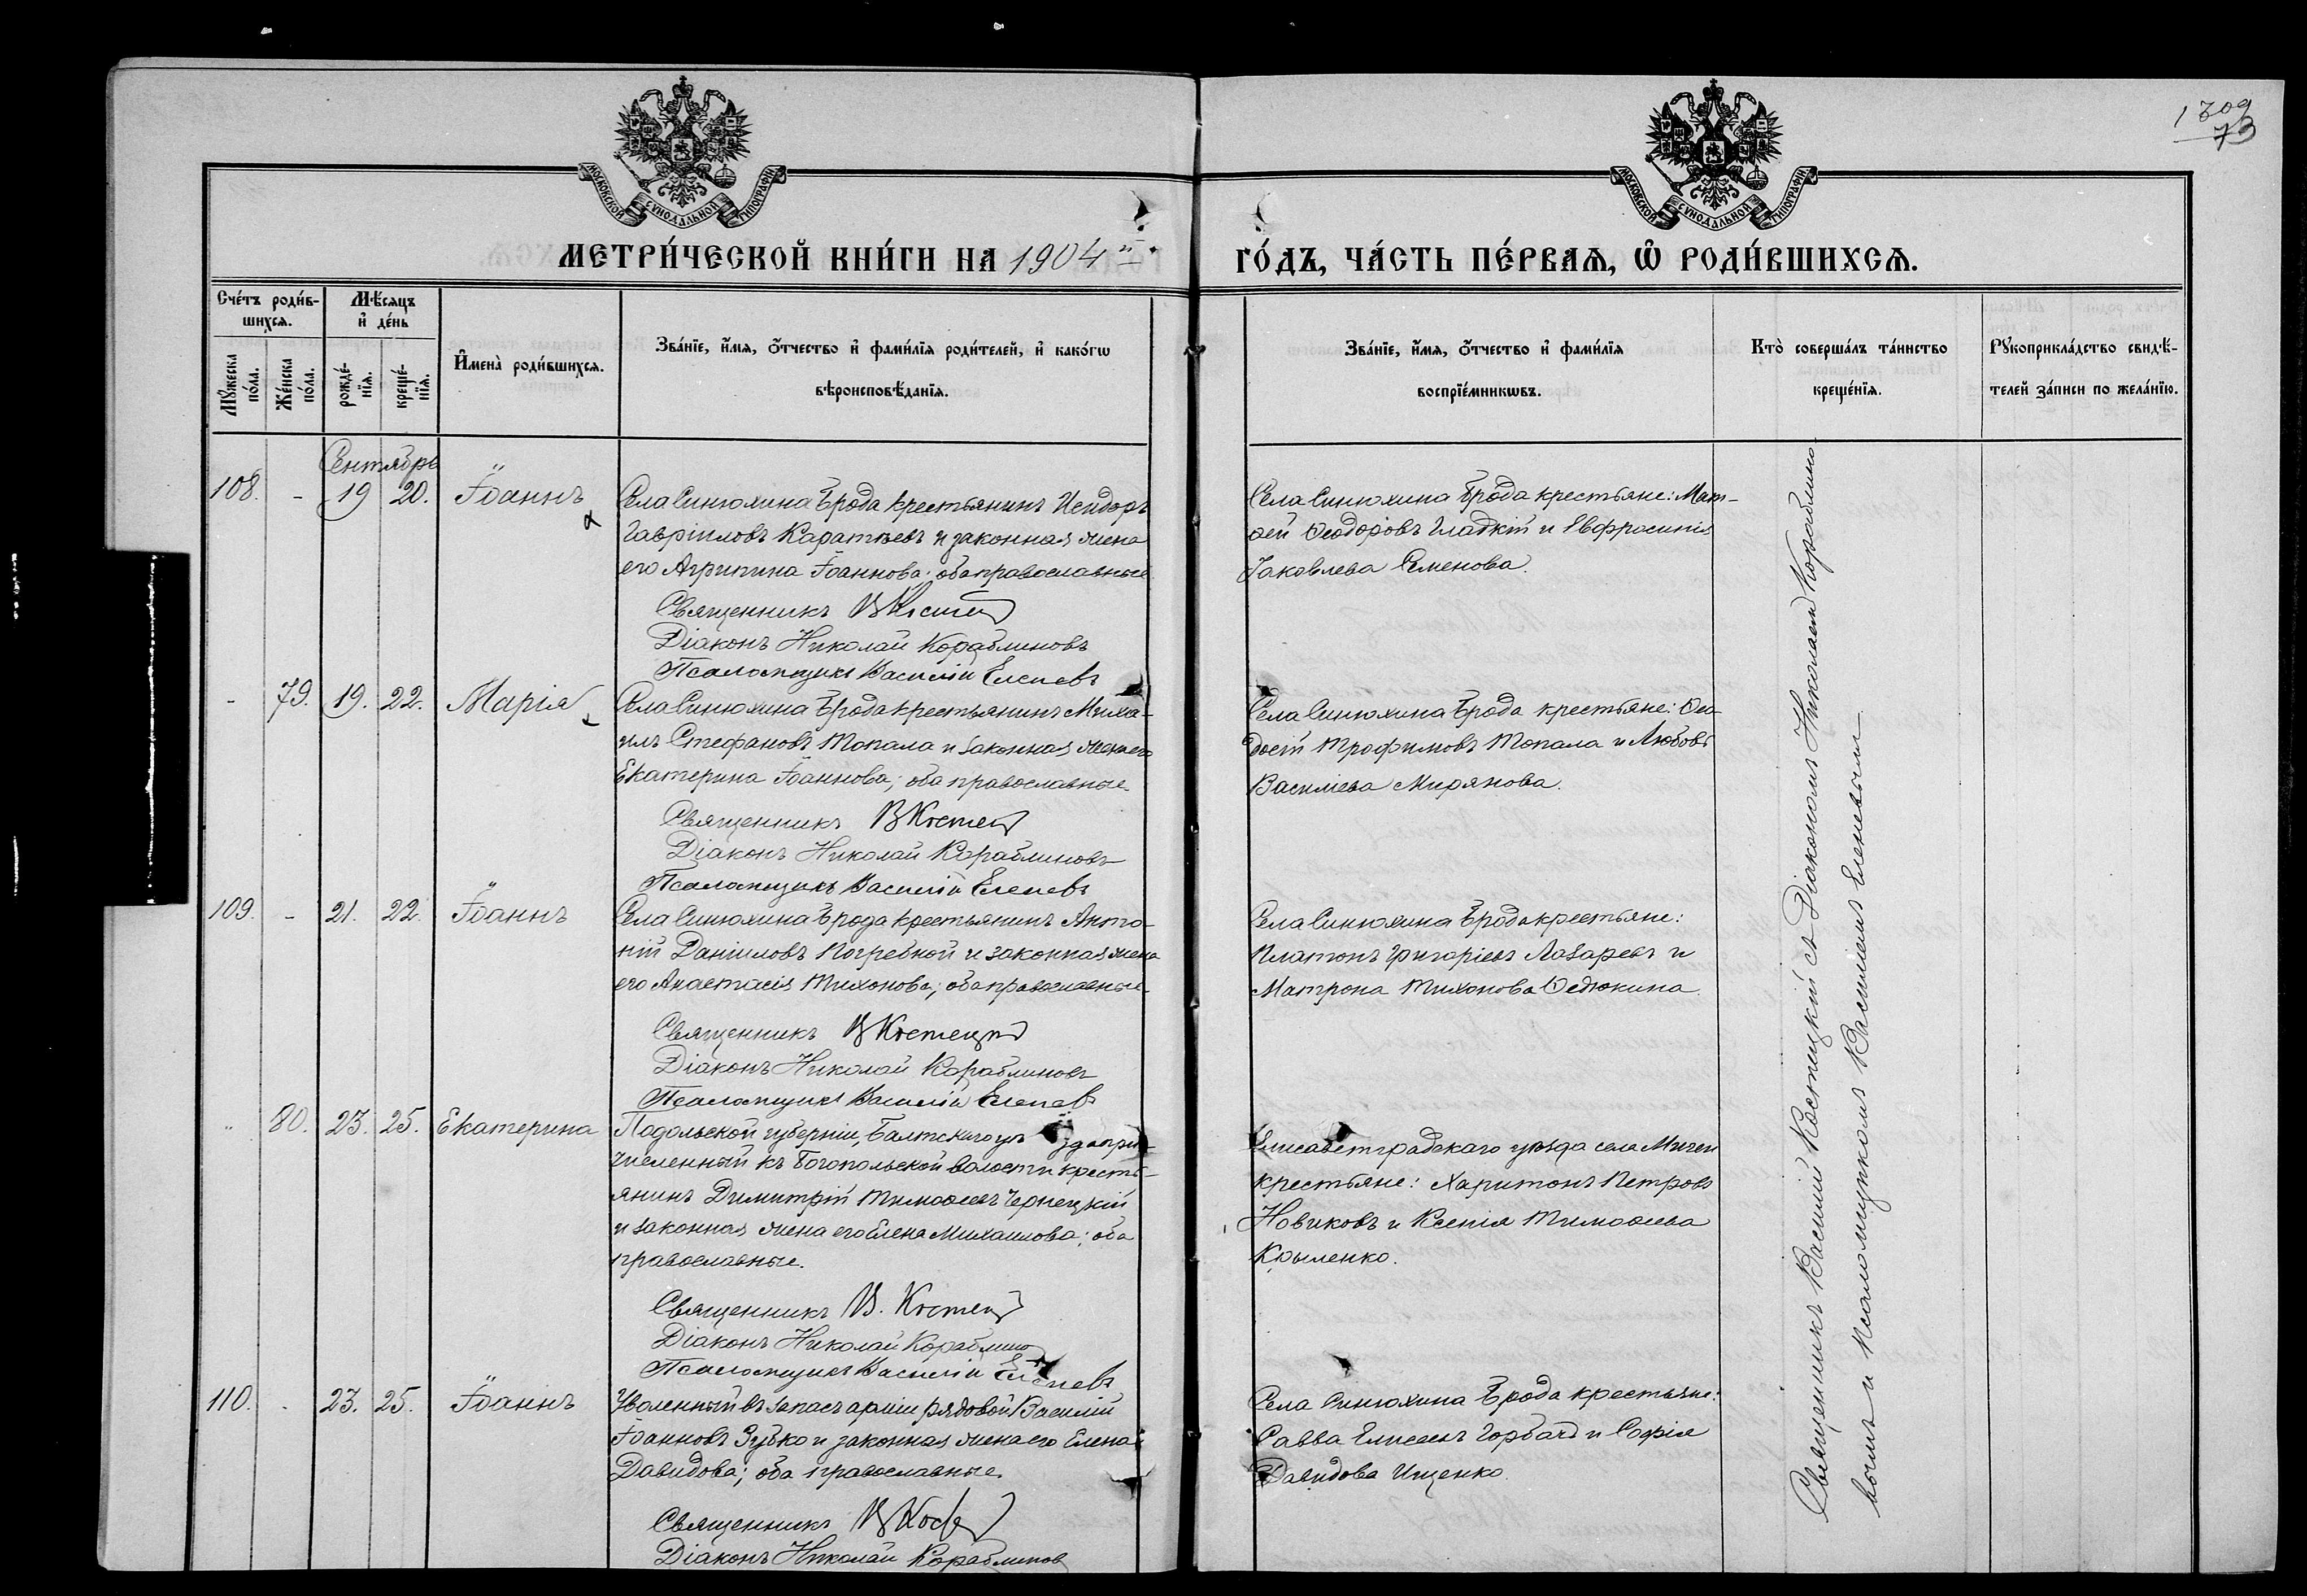 1309
73
МОСКОВСКОЙ СѴНОДАЛЬНОЙ ТИПОГРАФІИ
МОСКОВСКОЙ СѴНОДАЛЬНОЙ ТИПОГРАФІИ
МЕТРИ́ЧЕСКОЙ КНИ́ГИ НА 1904й
ГО́ДЪ, ЧА́СТЬ ПЕ́РВАѦ, Ѡ҆ РОДИ́ВШИХСѦ.
Сче́тъ роди́в-
шихсѧ.
Мꙋ́жеска по́ла.
Же́нска по́ла.
Мѣ́сѧцъ и҆ де́нь
рожде́-нїѧ.
креще́-нїѧ.
И҆мена̀ роди́вшихсѧ.
Зва́нїе, и҆́мѧ, ѻ҆́тчество и҆ фами́лїѧ роди́телей, и҆ како́гѡ
вѣроисповѣ́данїѧ.
Зва́нїе, и҆́мѧ, ѻ҆́тчество и҆ фами́лїѧ
воспрїе́мникѡвъ.
Кто̀ соверша́лъ та́инство
креще́нїѧ.
Рꙋкоприкла́дство свидѣ́-
телей за́писи по жела́нїю.
Сентябрь
108. - 19 20. Іоаннъ
Села Синюхина Брода крестьянинъ Исидоръ
Гавріиловъ Каратѣевъ и законная жена
его Агрипина Іоаннова; оба православные
Священникъ В Косте
Діаконъ Николай Кораблиновъ
Псаломщикъ Василій Еленевъ
Села Синюхина Брода крестьяне: Мат-
ѳей Ѳеодоровъ Гладкій и Евфросинія
Іаковлева Семенова.
- 79. 19. 22. Марія
Села Синюхина Брода крестьянинъ Миха-
илъ Стефановъ Топала и законная жена его
Екатерина Іоаннова; оба православные.
Священникъ В Костец
Діаконъ Николай Кораблиновъ
Псаломщикъ Василій Еленевъ
Села Синюхина Брода крестьяне: Ѳео-
досій Трофимовъ Топала и Любовь
Василіева Мирянова.
109. - 21. 22. Іоаннъ
Села Синюхина Брода крестьянинъ Анто-
ній Даніиловъ Погребной и законная жена
его Анастасія Тихонова; оба православные.
Священникъ В Костецкі
Діаконъ Николай Кораблиновъ
Псаломщикъ Василій Еленевъ
Села Синюхина Брода крестьяне:
Платонъ Григоріевъ Лазаревъ и
Матрона Тихонова Ѳедюкина.
" 80. 23. 25. Екатерина
Подольской губерніи, Балтскаго уѣзда при-
численный къ Богопольской волости кресть-
янинъ Димитрій Тимоѳеевъ Чернецкій
и законная жена его Елена Михаилова; оба
православные.
Священникъ В. Костец
Діаконъ Николай Кораблино
Псаломщикъ Василій Еленевъ
Елисаветградскаго уѣзда села Мигеи
крестьяне: Харитонъ Петровъ
Новиковъ и Ксенія Тимоѳеева
Крыленко.
110. - 23. 25. Іоаннъ
Уволенный въ запасъ арміи рядовой Василій
Іоанновъ Зубко и законная жена его Елена
Давидова; оба православные.
Священникъ В Косте
Діаконъ Николай Кораблинов
Села Синюхина Брода крестьяне:
Савва Елисеевъ Горбачъ и Софія
Давидова Ищенко.
Священникъ Василій Костецкій съ Діакономъ Николаемъ Кораблино-
вымъ и Псаломщикомъ Василіемъ Еленевымъ